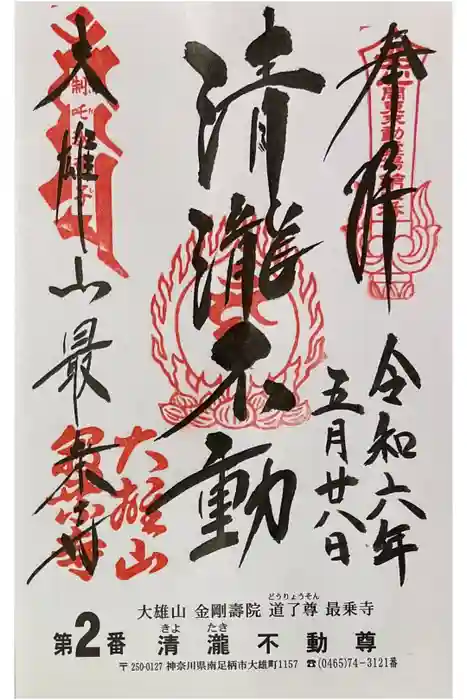 奉拝
令和六年
五月廿八日
清瀧不動
大雄山最乗寺
制吒
大雄山
最乗寺
大雄山 金剛壽院 道了尊 最乗寺
どうりょうそん
第2番 清瀧不動尊
きよ たき
〒250-0127 神奈川県南足柄市大雄町1157 ☎(0465)74-3121番